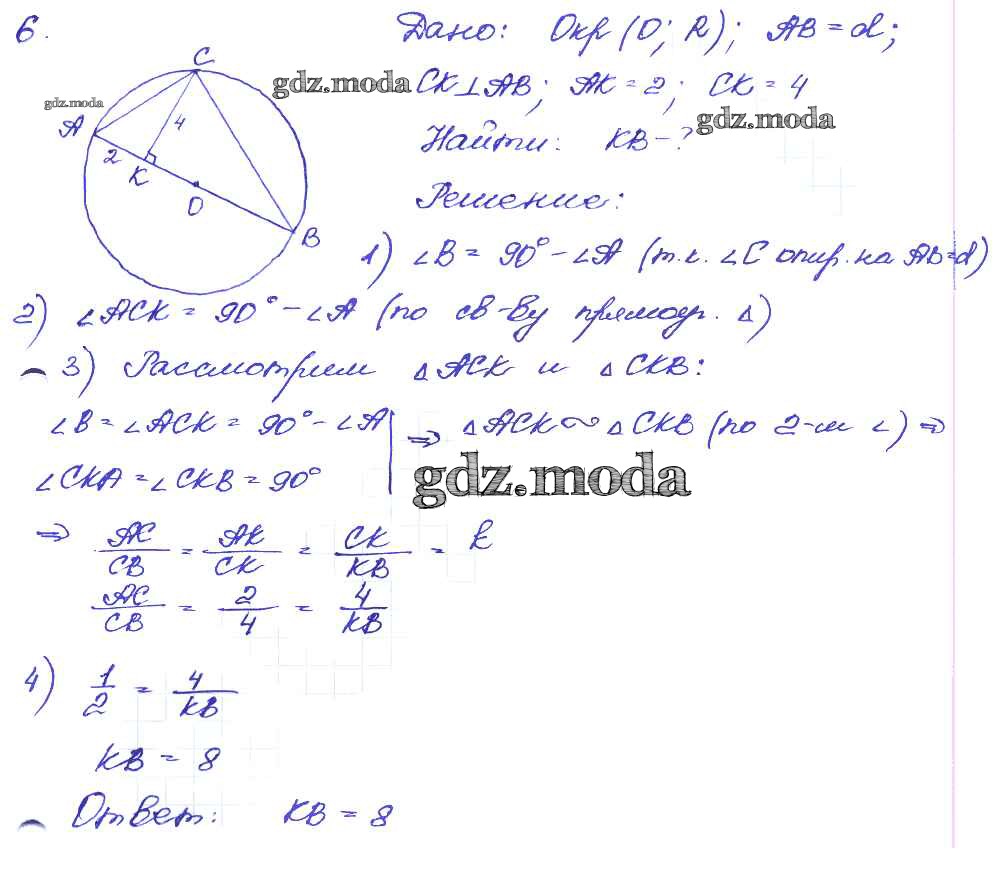 6.
Дано: Окр (O; R); AB = d;
CK ⊥ AB; AK = 2; CK = 4
Найти: KB - ?
Решение:
C
A
4
2
K
O
B
gdz.moda
gdz.moda
gdz.moda
1) ∠B = 90° - ∠A (т.к. ∠C опир. на AB = d)
2) ∠ACK = 90° - ∠A (по св-ву прямоуг. △)
3) Рассмотрим △ACK и △CKB:
∠B = ∠ACK = 90° - ∠A
∠CKA = ∠CKB = 90°
⇒ △ACK ∾ △CKB (по 2-м ∠) ⇒
gdz.moda
⇒ AC/CB = AK/CK = CK/KB = k
AC/CB = 2/4 = 4/KB
4) 1/2 = 4/KB
KB = 8
Ответ: KB = 8